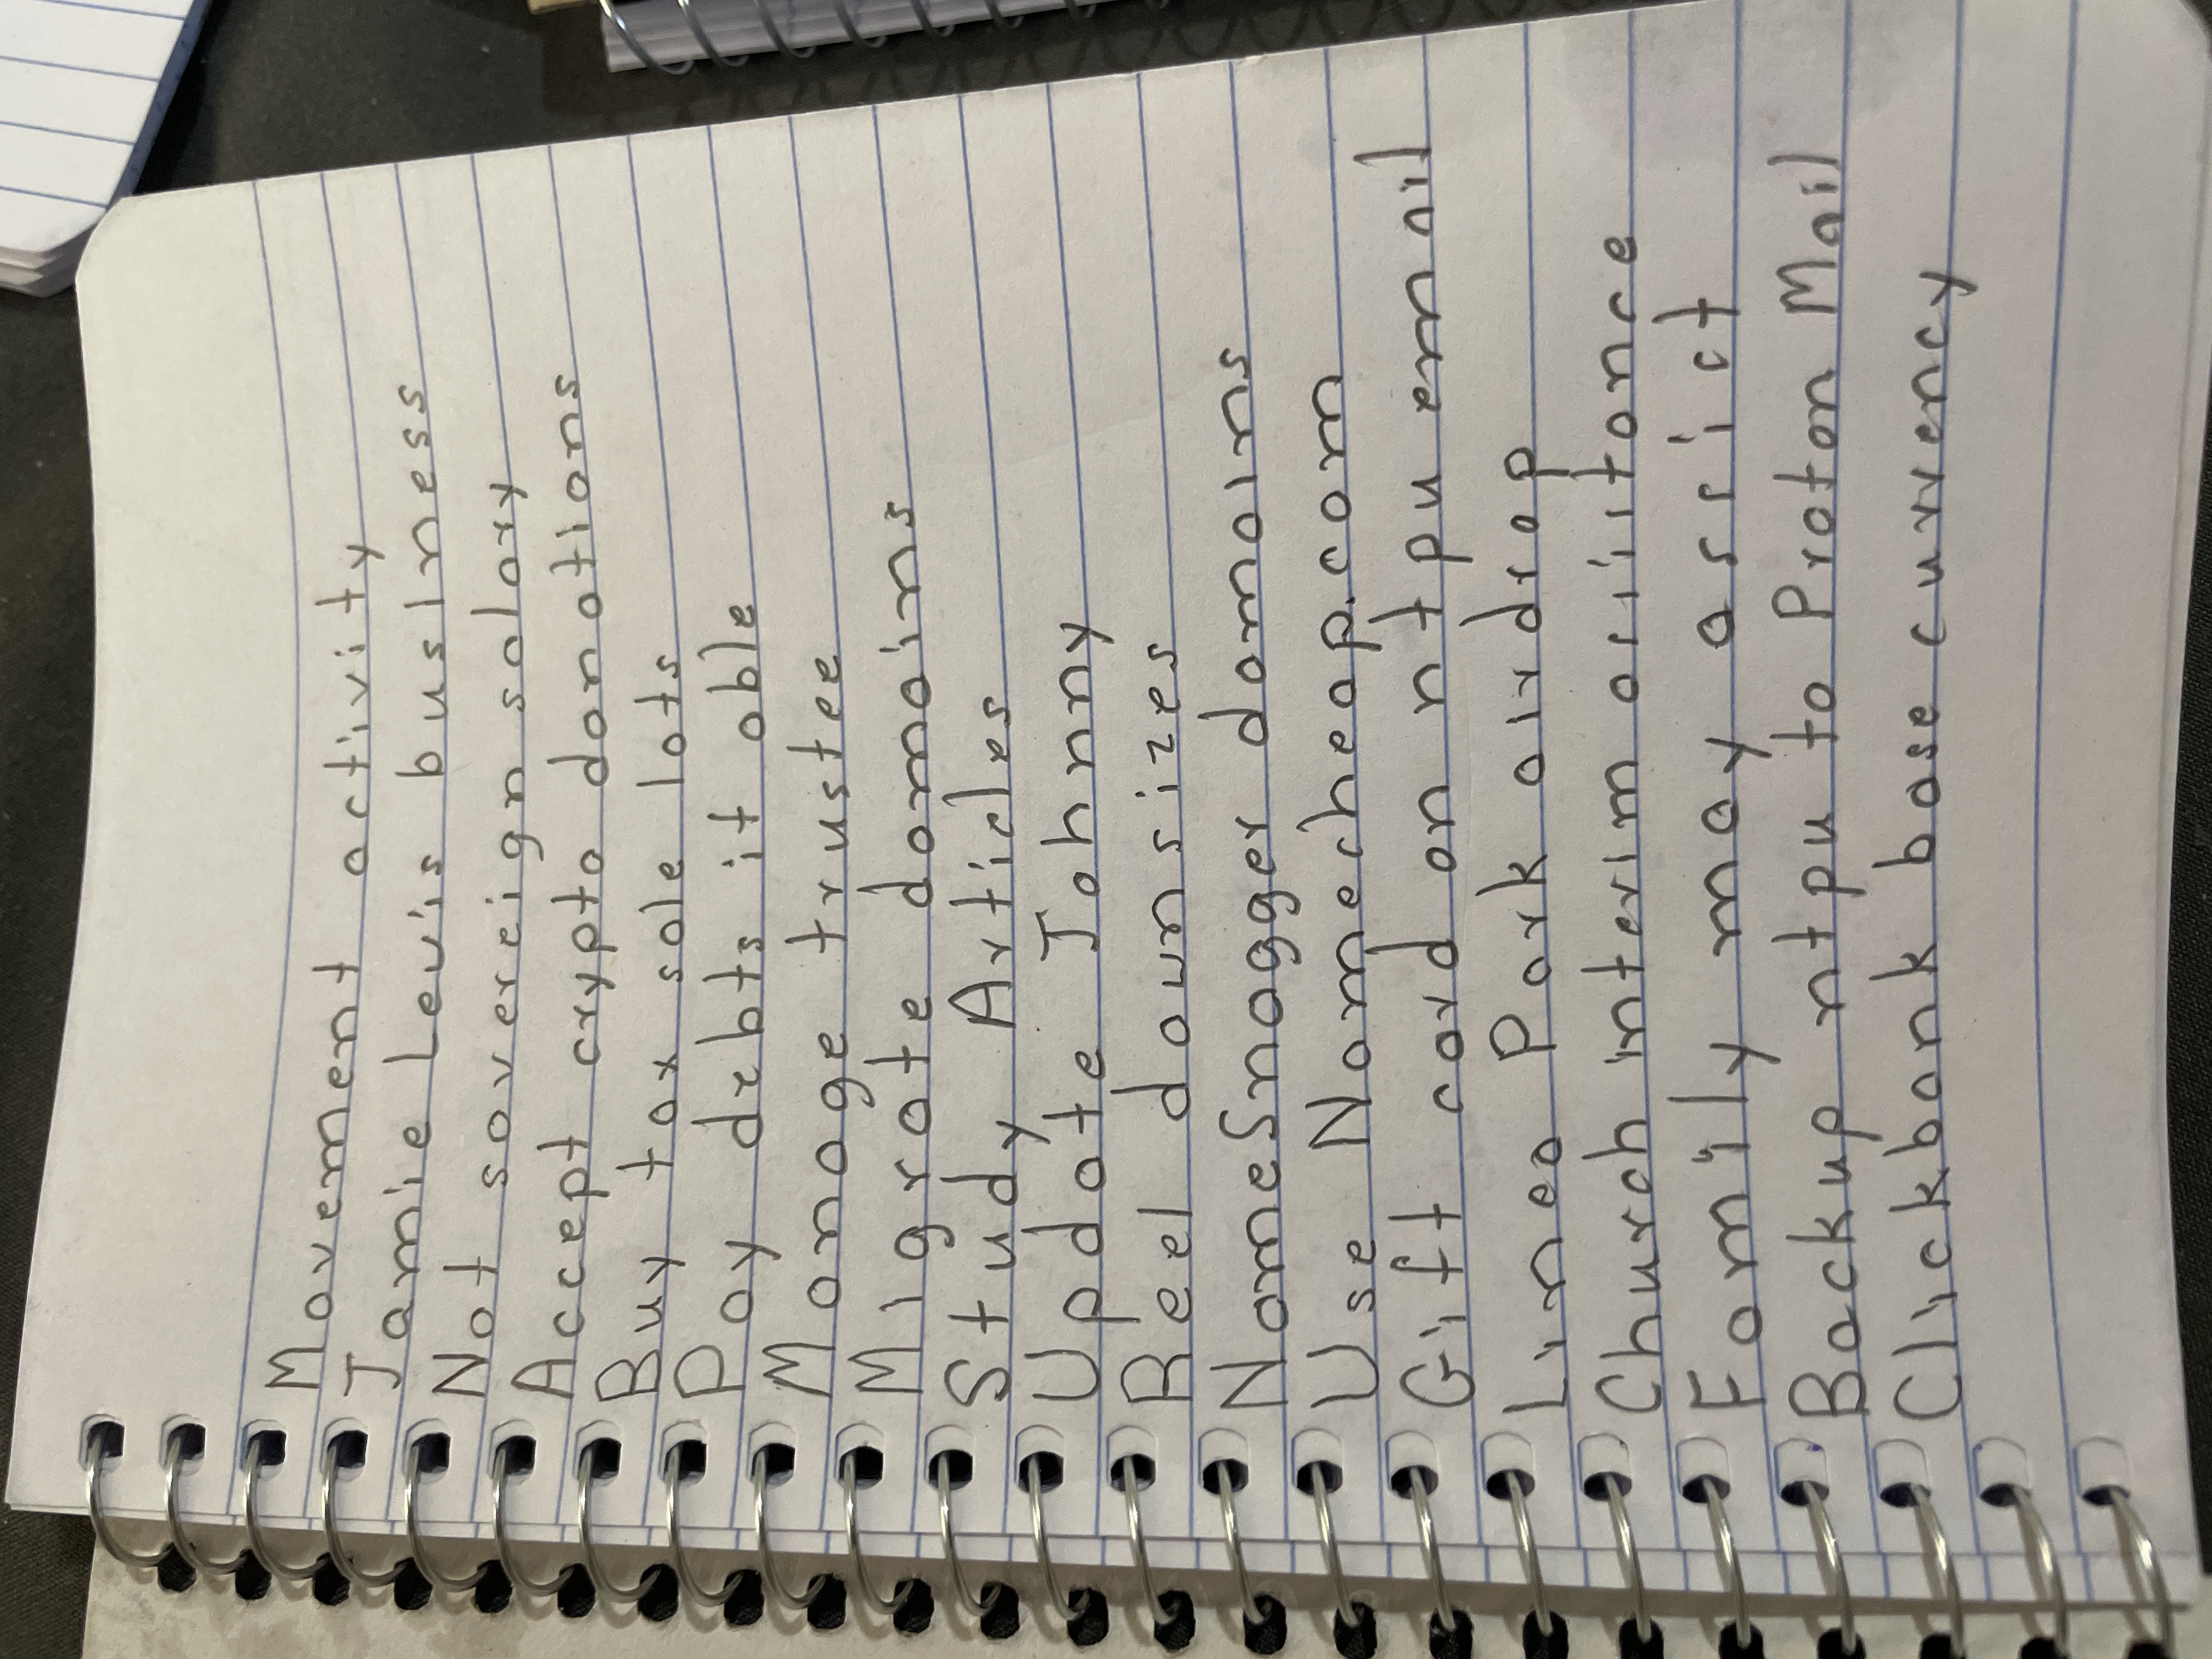 Movement activity
Jamie Lewis business
Not sovereign salary
Accept crypto donations
Buy tax sale lots
Pay debts if able
Manage trustee
Migrate domains
Study Articles
Update Johnny
Bel downsizes
NameSnagger domains
Use Namecheap.com
Gift card on ntpu email
Linea Park airdrop
Church interim assistance
Family may assist
Backup ntpu to Proton Mail
Clickbank base currency